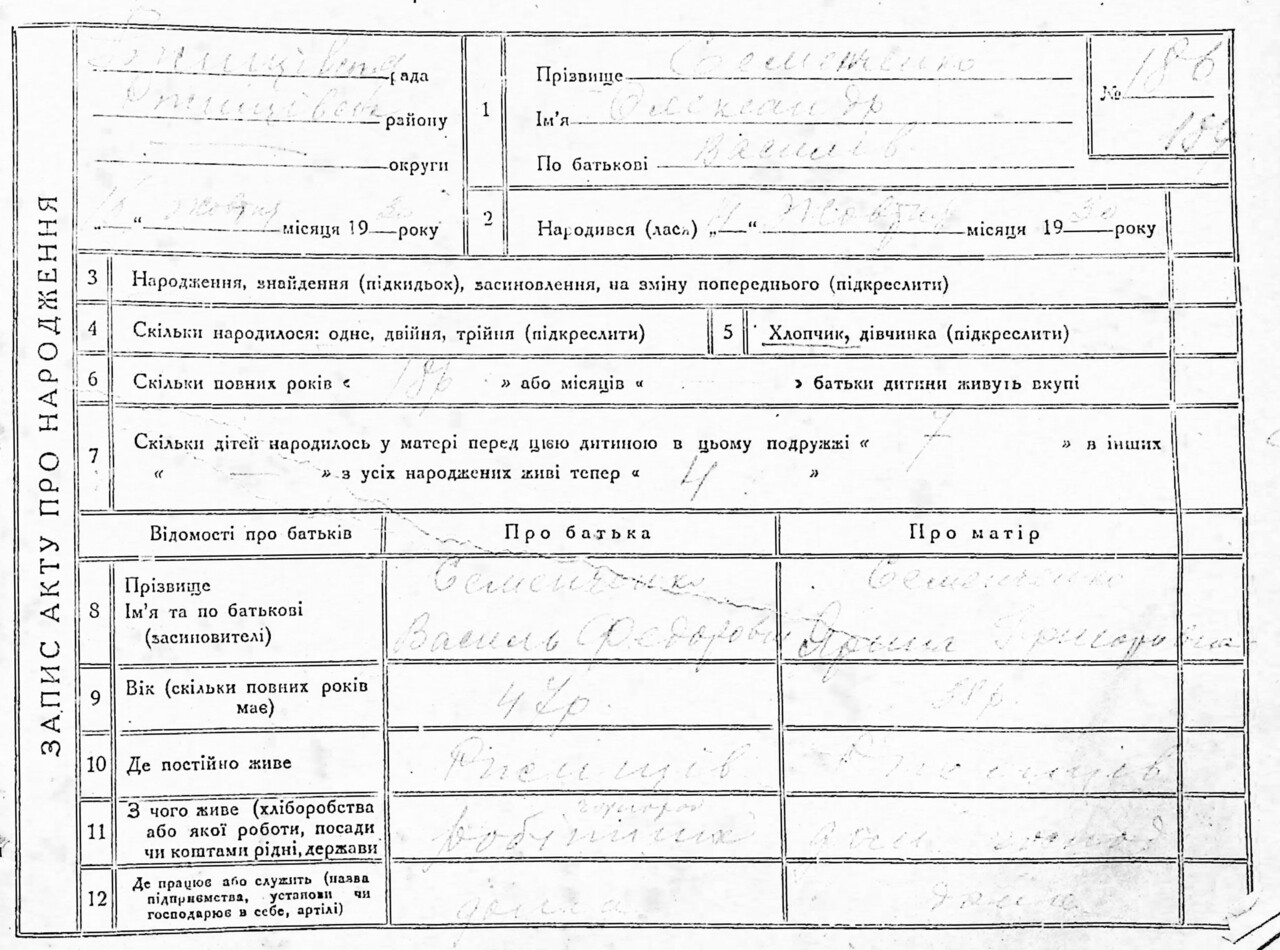 ЗАПИС АКТУ ПРО НАРОДЖЕННЯ
рада
району
округи
16 „ “ жовтня місяця 19 30 року
1 Прізвище Семенченко
Ім’я Олександр
По батькові Василів
№ 186
2 Народився (лась) „ 11 “ Жовтня місяця 19 30 року
3 Народження, знайдення (підкидьох), засиновлення, на зміну попереднього (підкреслити)
4 Скільки народилося: одне, двійня, трійня (підкреслити)
5 Хлопчик, дівчинка (підкреслити)
6 Скільки повних років « 18р » або місяців « » батьки дитини живуть вкупі
7 Скільки дітей народилось у матері перед цією дитиною в цьому подружжі « 7 » в інших
« — » з усіх народжених живі тепер « 4 »
Відомості про батьків Про батька Про матір
8 Прізвище Семенченко Семенченко
Ім’я та по батькові
(засиновителі) Василь Федорович Григоровна
9 Вік (скільки повних років
має) 47р. 38р
10 Де постійно живе Ржищів Ржищів
11 З чого живе (хліборобства
або якої роботи, посади
чи коштами рідні, держави робітник дом господ
12 Де працює або служить (назва
підприємства, установи чи
господарює в себе, артілі) дома дома